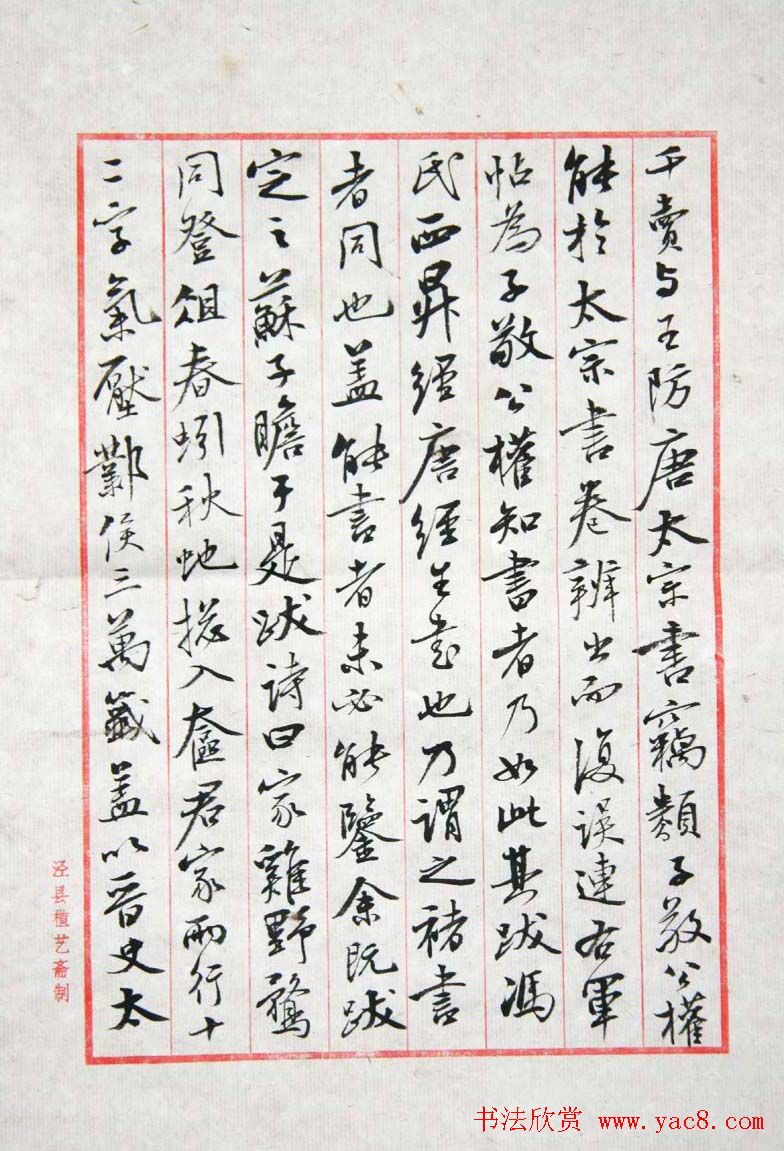 千賣与王防唐太宗書竊類子敬公權
能於太宗書卷辨出而復誤連右軍
帖為子敬公權知書者乃如此其跋馮
氏西昇經唐經生書也乃謂之褚書
者同也盖能書者未必能鑒余既跋
定之蘇子瞻于是跋詩曰家雞野鶩
同登俎春蚓秋蛇揔入奩君家兩行十
二字氣壓鄴侯三萬籤盖以晉史太
泾县植艺斋制
书法欣赏 www.yac8.com